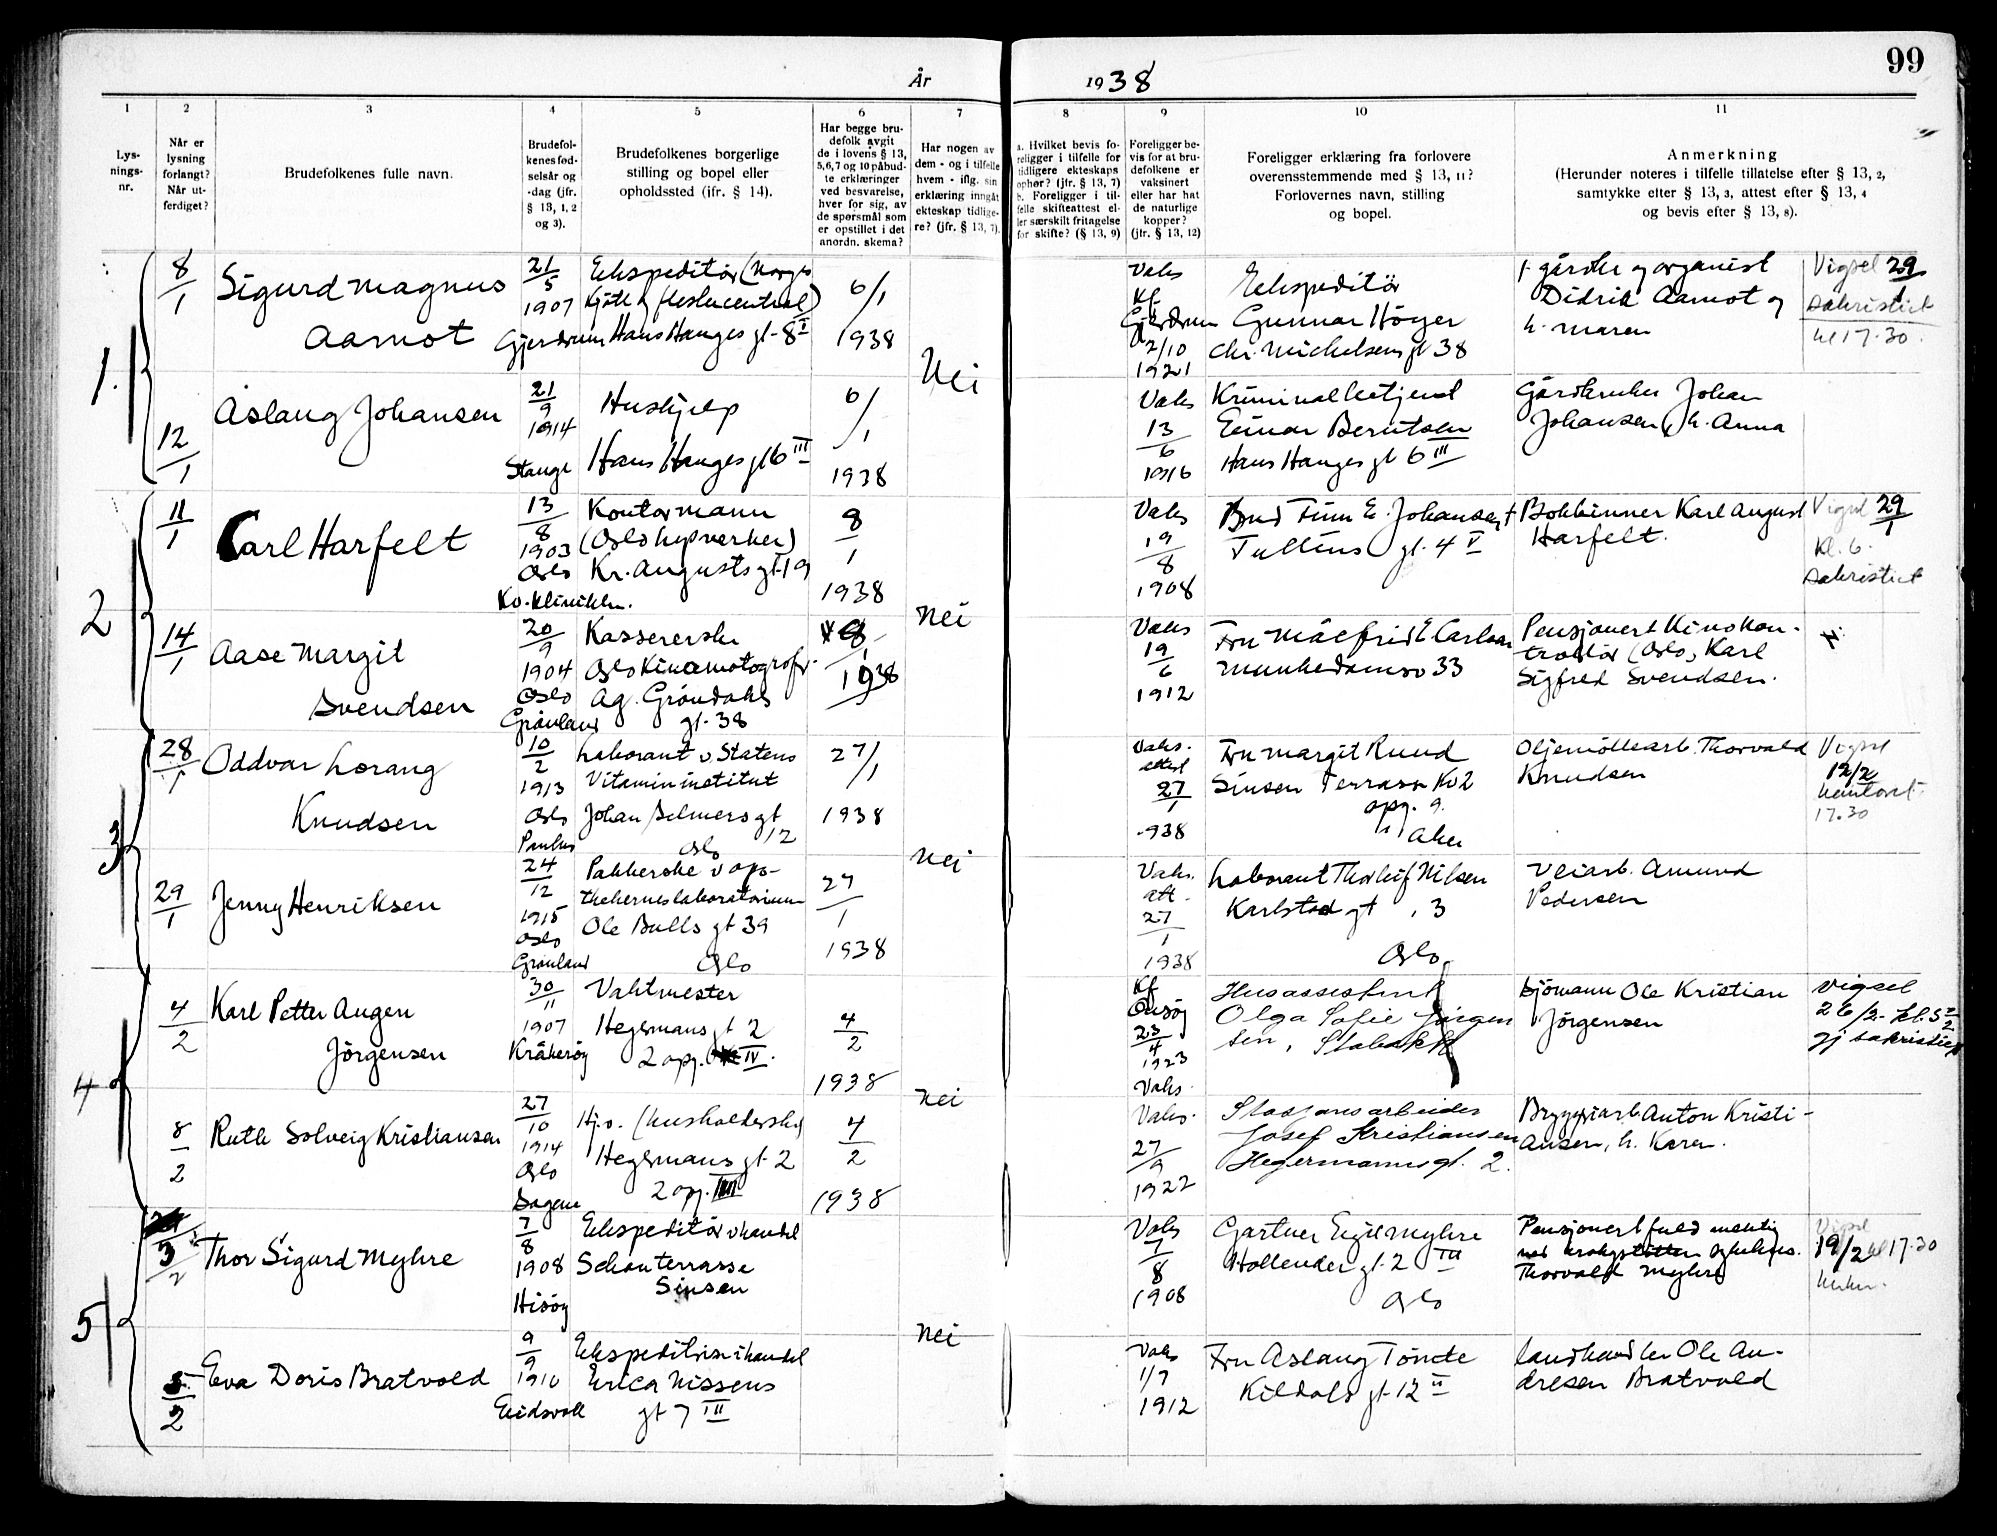 99
År 1938
1
2
3
4
5
6
7
8
9
10
11
Lys-
nings-
nr.
Når er
lysning
forlangt?
Når ut-
ferdiget?
Brudefolkenes fulle navn.
Brudefol-
kenes fød-
selsår og
-dag (jfr.
§ 13, 1, 2
og 3).
Brudefolkenes borgerlige
stilling og bopel eller
opholdssted (ifr. § 14).
Har begge bru-
defolk avgit
de i lovens § 13,
5,6,7 og 10 påbud-
te erklæringer
ved besvarelse,
hver for sig, av
de spørsmål som
er opstillet i det
anordn. skema?
Har nogen av
dem - og i tilfelle
hvem - iflg. sin
erklæring inngåt
ekteskap tidlige-
re? (jfr. § 13, 7).
a. Hvilket bevis fo-
religger i tilfelle for
tidligere ekteskaps
ophør? (jfr. § 13, 7)
b. Foreligger i til-
felle skifteattest el-
ler særskilt fritagelse
for skifte? (§ 13, 9)
Foreligger be-
vis for at bru-
defolkene er
vaksinert
eller har hat
de naturlige
kopper?
(jfr. § 13, 12)
Foreligger erklæring fra forlovere
overensstemmende med § 13, 11?
Forlovernes navn, stilling
og bopel.
Anmerkning
(Herunder noteres i tilfelle tillatelse efter § 13, 2,
samtykke efter § 13, 3, attest efter § 13, 4
og bevis efter § 13, 8).
1.
8/1
Sigurd Magnus
Aamot
21/5
1907
Gjerdrum
Ekspeditør (Norges
Kjøtt og fleskecentral)
Hans Hauges gt. 8 I
6/1
1938
Nei
Vaks
Kf.
Gjerdrum
2/10
1921
Ekspeditör
Gunnar Höyer
Chr. Michelsens gt 38
f. gårdbr og organist
Didrik Aamot og
h. Maren
Vigsel 29/1
Sakristiet
kl 17.30.
12/1
Aslaug Johansen
21/9
1914
Stange
Hushjelp
Hans Hauges gt 6 III
6/1
1938
Vaks
13/6
1916
Kriminalbetjent
Einar Berntsen
Hans Hauges gt 6 III
Gårdbruker Johan
Johansen, h. Anna
2
11/1
Carl Harfelt
13/8
1903
Oslo
Kv.klinikken.
Kontormann
(Oslo lysverker)
Kr. Augusts gt. 19
8/1
1938
Nei
Vaks
19/8
1908
Finn E. Johansen
Tullins gt. 4 V
Bokbinner Karl August
Harfelt.
Vigsel 29/1
Kl. 6.
Sakristiet
14/1
Aase Margit
Svendsen
20/9
1904
Oslo
Grönland
Kassererske
Oslo Kinematografer
Ag. Gröndahls
gt. 38
8/1
1938
Vaks
19/6
1912
Fru Målfrid E Carlsen
Munkedamsv 33
Pensjonert Kinokon-
trollør (Oslo) Karl
Sigfred Svendsen.
3
28/1
Oddvar Lorang
Knudsen
10/2
1913
Oslo
Paulus
Laborant v Statens
Vitamininstitut
Johan Selmers gt
12
Oslo
27/1
1938
Nei
Vaks.
attest
27/1
938
Fru Margit Ruud
Sinsen Terrasse Kv 2
opg. 9.
Aker
Oljemöllearb. Thorvald
Knudsen
Vigsel
12/2
17.30
29/1
Jenny Henriksen
24/12
1915
Oslo
Grönland
Pakkerske v apo-
thekerneslaboratorium
Ole Bulls gt 39
Oslo
27/1
1938
Vaks.
att.
27/1
1938
Laborant Thorleif Nilsen
Karlstad gt. 3
Oslo
Veiarb. Amund
Pedersen
4
4/2
Karl Petter Augen
Jörgensen
30/11
1907
Kråkeröy
Vaktmester
Hegermans gt 2
2 opg. IV.
4/2
1938
Nei
Kf
Onsöy
23/4
1923
Vaks.
Husassistent
Olga Sofie Jörgen
sen, Stabekk
Sjömann Ole Kristian
Jörgensen
Vigsel
26/2. kl. 5
i sakristiet
8/2
Ruth Solveig Kristiansen
27/10
1914
Oslo
Sagene
Hj.v. (husholderske)
Hegermans gt 2
2 opg. III
4/2
1938
Vaks.
27/9
1922
Stasjonsarbeider
Josef Kristiansen
Hegermannsgt. 2.
Bryggeriarb. Anton Kristi-
ansen, h. Karen.
5
3/2
Thor Sigurd Myhre
7/8
1908
Hisöy
Ekspeditör v handel
Schouterrasse
Sinsen
Nei
Vaks
7/8
1908
Gartner Egil Myhre
Hollender gt. 2 III
Oslo
Pensjonert
Thorvald Myhre
Vigsel
19/2 kl 17.30
5/2
Eva Doris Bratvold
9/9
1910
Eidsvoll
Ekspeditrise i handel
Erica Nissens
gt 7 III
Vaks
1/7
1912
Fru Aslaug Tömte
Kildals gt. 12 II
Landhandler Ole An-
dresen Bratvold